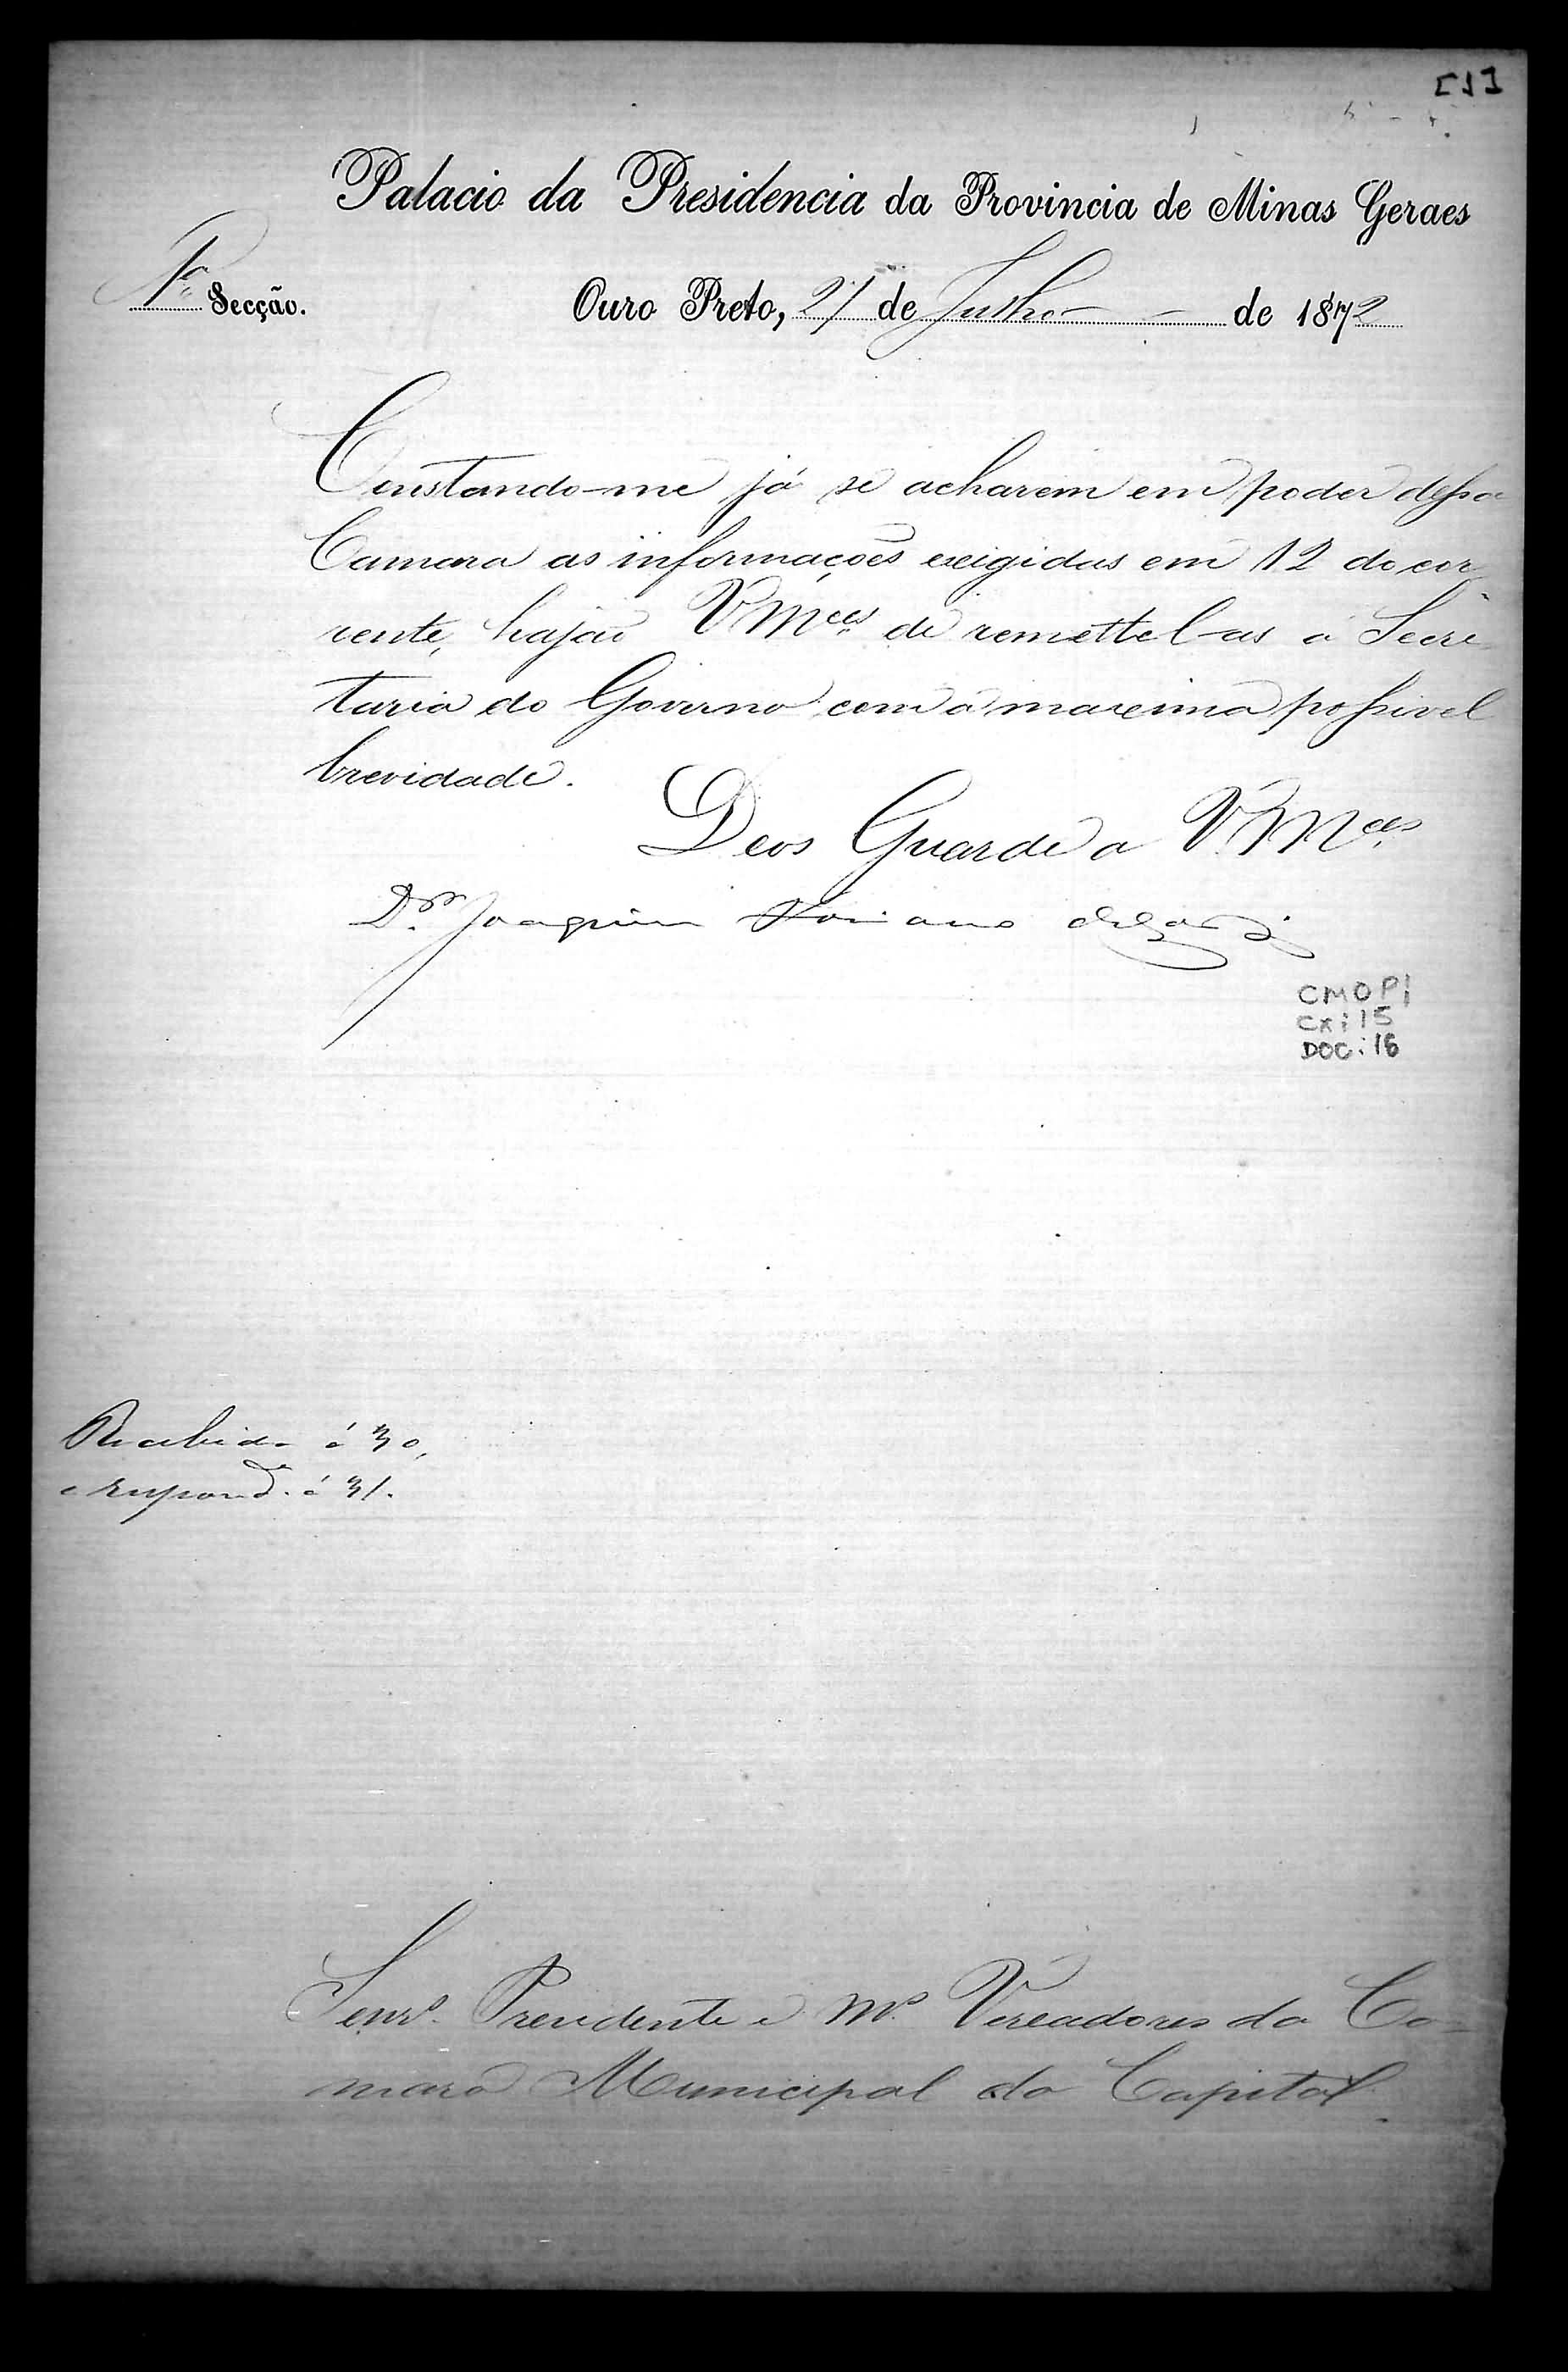 [1]
Palacio da Presidencia da Provincia de Minas Geraes
1ª Secção.
Ouro Preto, 27 de Julho de 1872
Constando-me já se acharem em poder dessa
Camara as informações exigidas em 12 do cor-
rente, hajão VMces de remettel-as á Secre-
taria do Governo com a maxima possivel
brevidade.
Deos Guarde a VMces
Dor Joaquim Floriano de Godoy
CMOP
Cx: 15
DOC: 16
Recebido á 30,
e respond. á 31.
Senrs. Presidente e Ms. Vereadores da Ca-
mara Municipal da Capital.